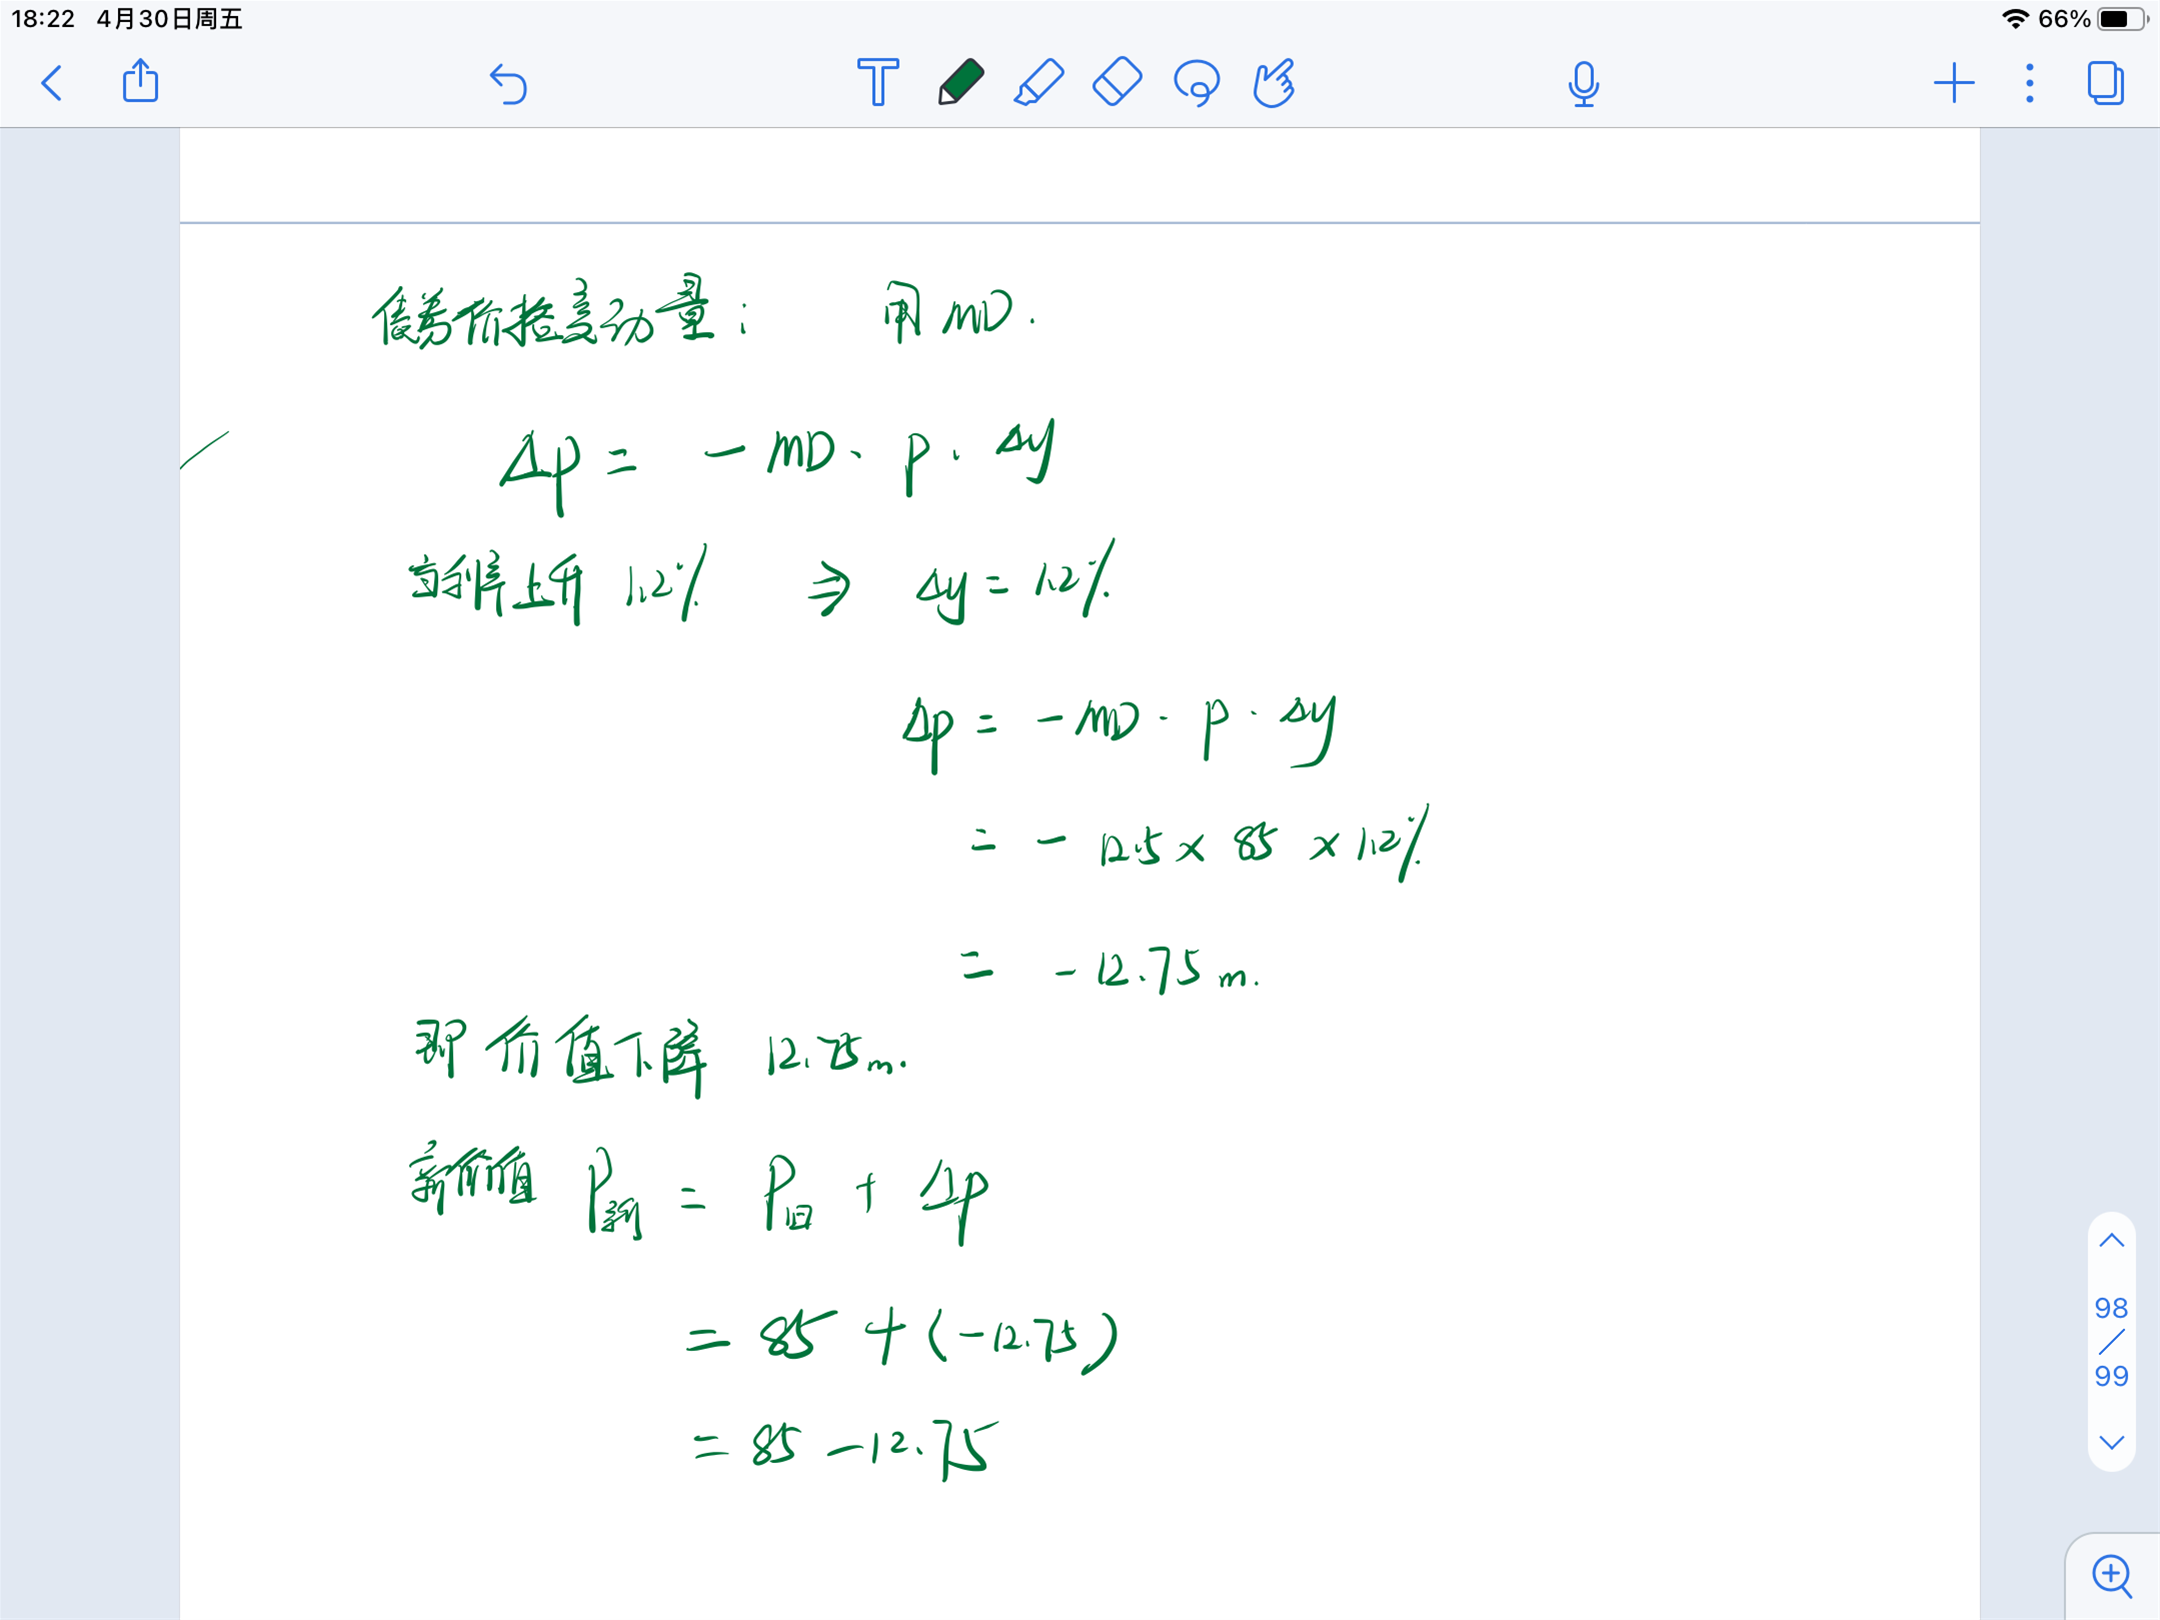 18:22 4月30日周五 66%
T
债券价格变动量： 用MD.
Δp = -MD· p · Δy
当利率上升 1.2% ⇒ Δy = 1.2%
Δp = -MD · p · Δy
= - 12.5 × 85 × 1.2%
= -12.75 m.
即价值下降 12.75 m.
新价值 P新 = P旧 + Δp
= 85 + (-12.75)
= 85 - 12.75
98
/
99